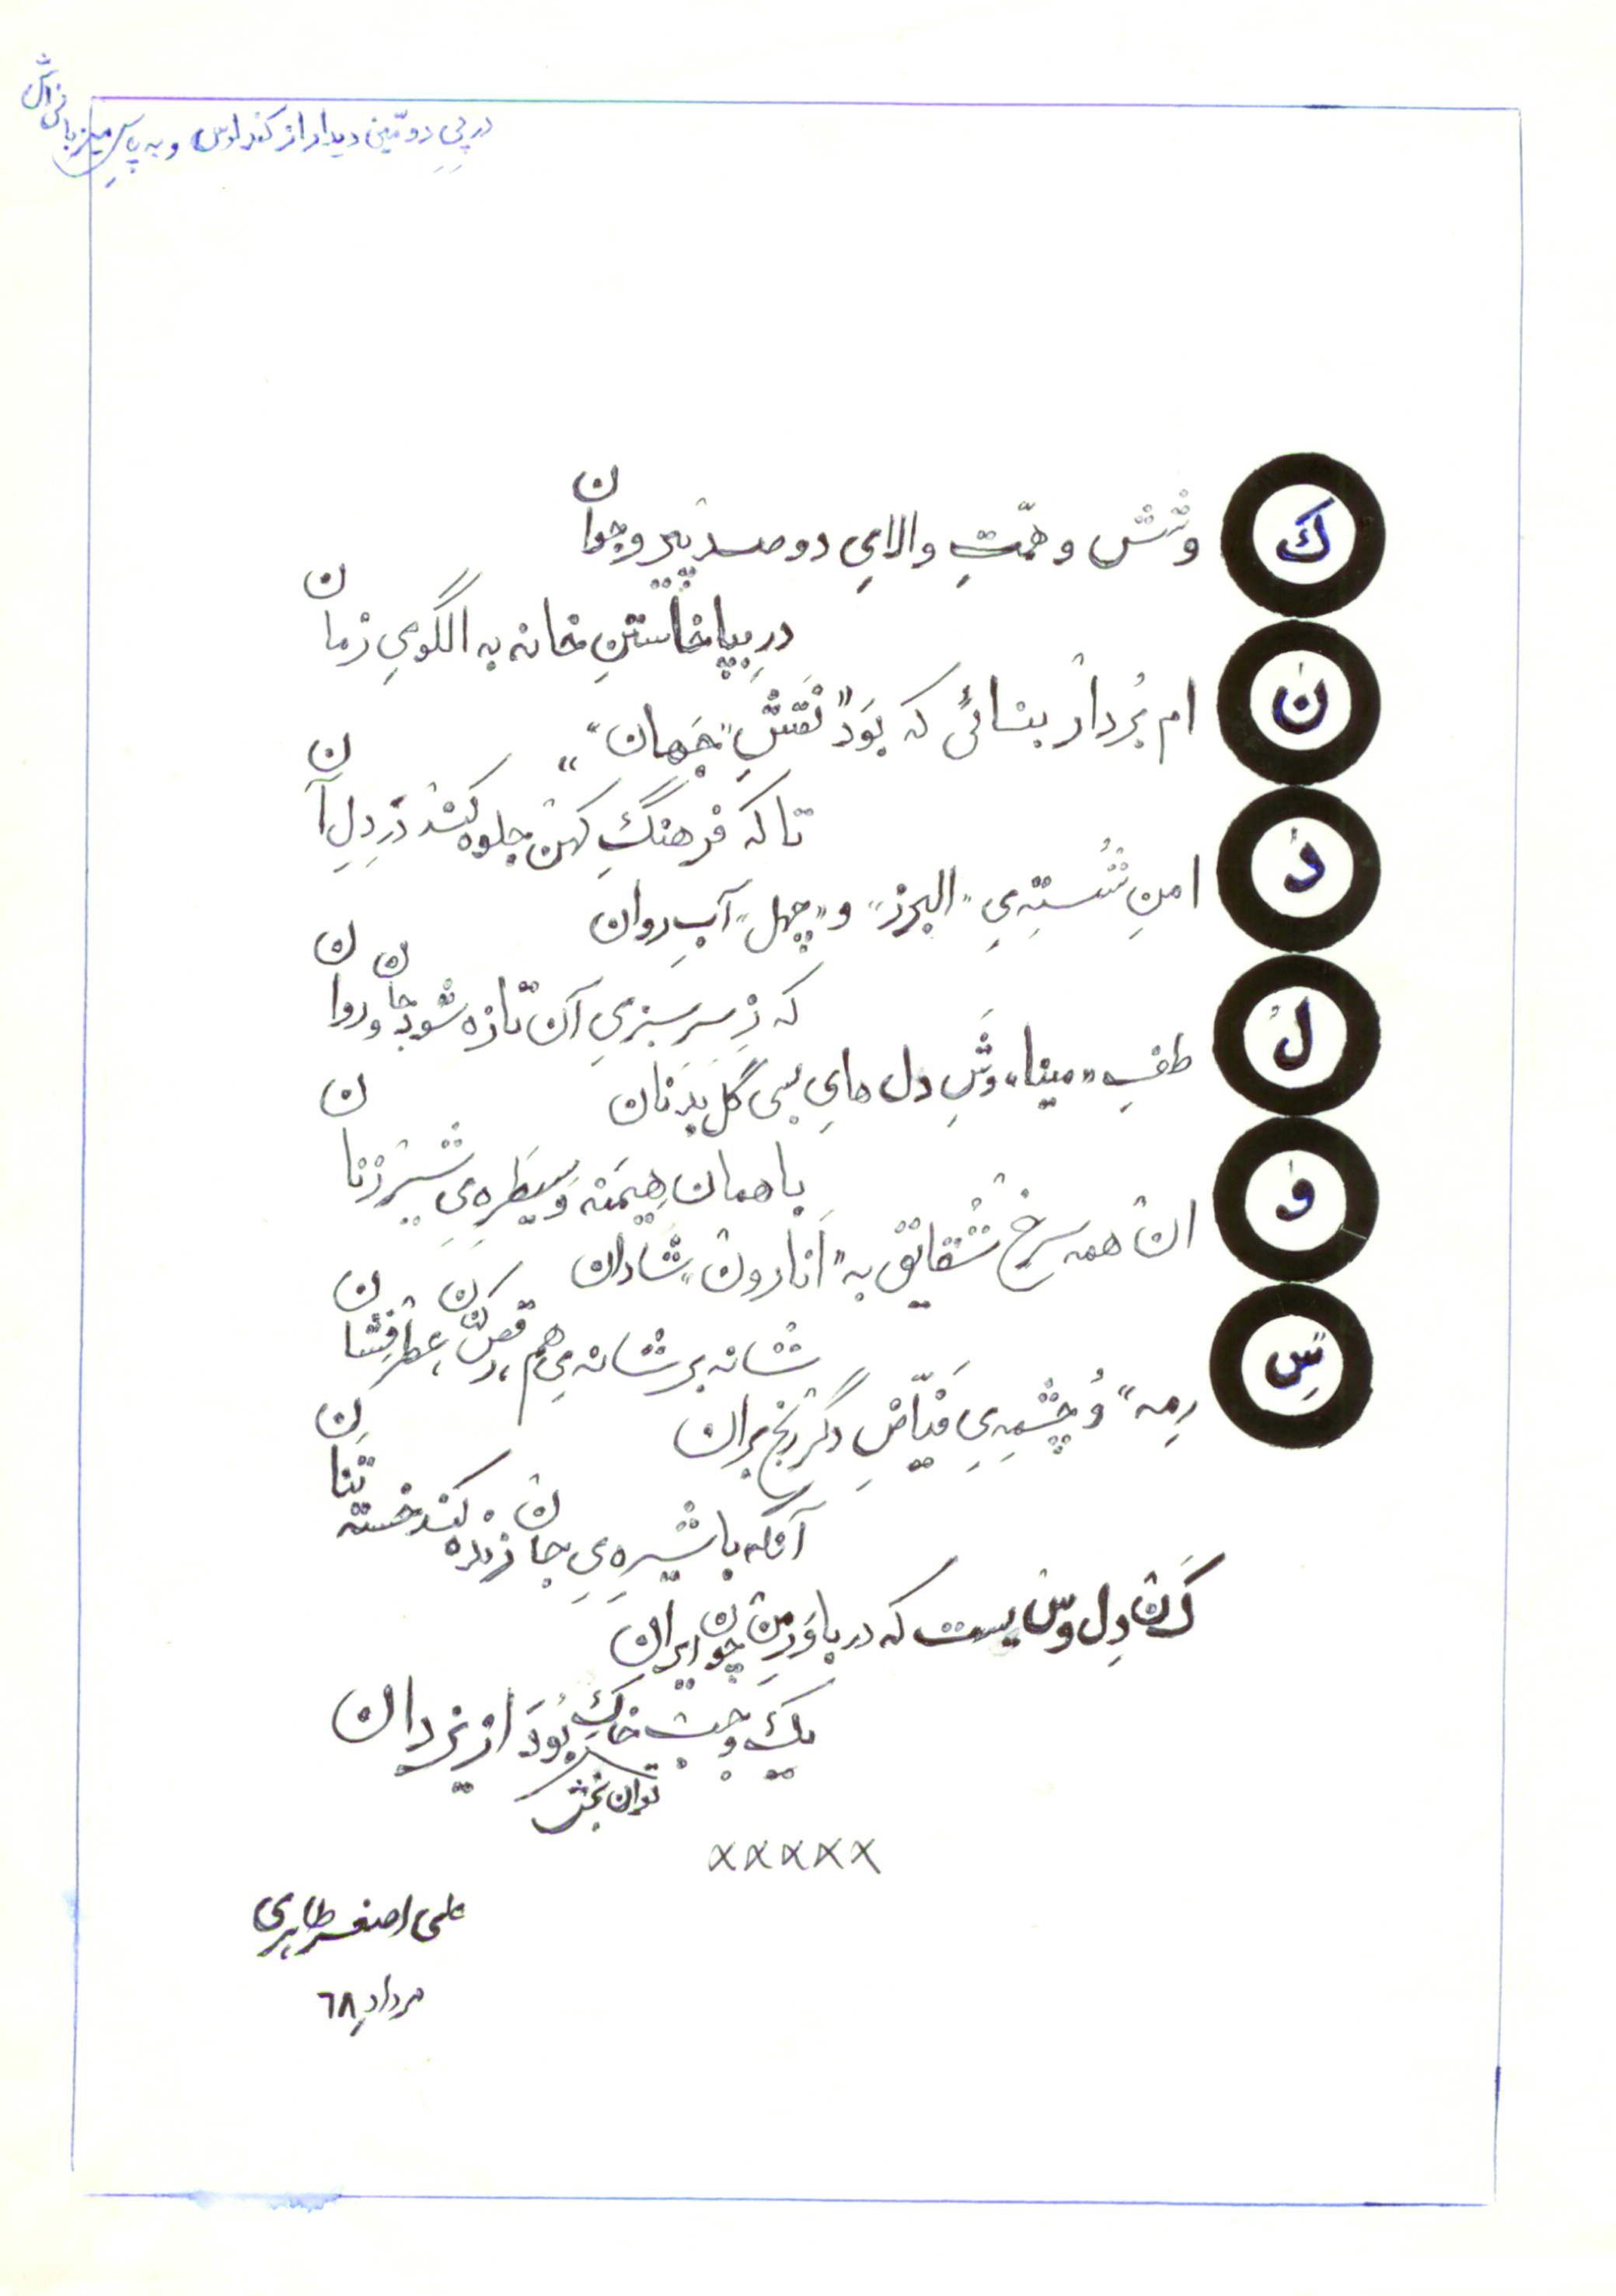 در پیِ دومّین دیدار از کندلوس و به پاسِ میزبانی‌اش
کوشش و همّتِ والایِ دو صد پیر و جوان
در بپاخاستنِ خانه به الگویِ زمان
نام بُردار بنائی که بُوَد "نقشِ" جَهان"
تا که فرهنگِ کهن جلوه کند در دلِ آن
دامنِ شُسته‌یِ "البرز" و "چهل" آبِ روان
که زِ سرسبزیِ آن تازه شود جان و روان
لطفِ "مینا" وَشِ دل هایِ بسی گل بَدَنان
با همان هِیمَنه و سِیطَره‌یِ شیرزنان
وان همه سرخ شقایق به "اَنارون" شادان
شانه بر شانه‌یِ هم، رقص کنان، عطر فِشان
سِرمه" وُ چشمه‌یِ فیّاضِ دگر رنج بران
آنکه با شیره‌یِ جان زنده کند خسته تنان
کَن دِل وس یست که در باوَرِ من چون ایران
یک وجب خاکِ توان بخش بُوَد از یزدان
×××××
علی اصغر طاهری
مرداد ٦٨